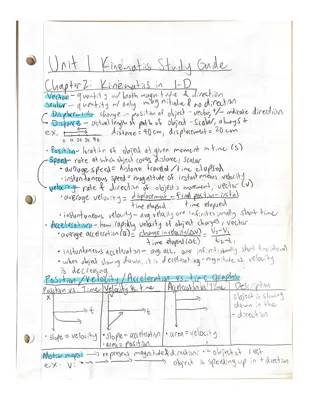 Unit 1 Kinematics Study Guide
Chapter 2: Kinematics in 1-D
Vector - quantity w/ both magnitude & direction
Scalar - quantity w/ only magnitude & no direction
Displacement - change in position of object - vector, +/- indicate direction
Distance - actual length of path of an object - scalar, always +
ex. distance = 90 cm, displacement = 20 cm
• Position - location of object at given moment in time (s)
Speed - rate at which object covers distance; scalar
• average speed = distance traveled / time elapsed
• instantaneous speed = magnitude of instantaneous velocity
velocity - rate & direction of object's movement, vector (v)
• average velocity = displacement = final position - initial
time elapsed time elapsed
• instantaneous velocity - avg velocity over infinitesimally short time
• Acceleration - how rapidly velocity of object changes, vector
• average acceleration (a) = change in velocity (ΔV) = V2 - V1
time elapsed (Δt) t2 - t1
• instantaneous acceleration - avg acc. over infinitesimally short time interval
• when object slowing down, it is decelerating - magnitude of velocity
is decreasing
Position / Velocity / Acceleration vs. time Graphs
Position vs. Time Velocity vs. time Acceleration vs. Time Description
x t t object is slowing
down in the
- direction
• slope = velocity • slope = acceleration • area = velocity
• area = position
Motion maps → represent magnitude & direction • object at rest
ex: v: object is speeding up in + direction